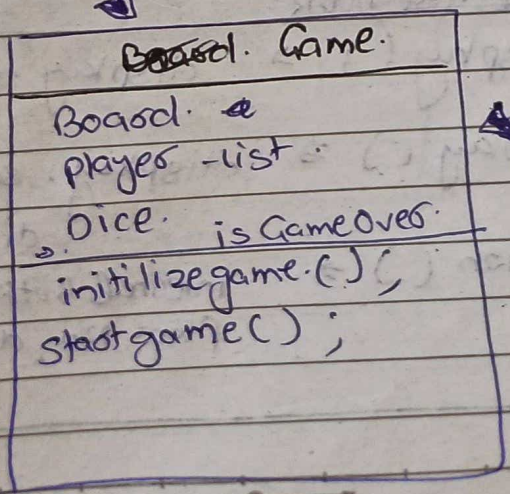 Board. Game.
Board.
player -list.
Dice. is GameOver.
initilizegame.();
startgame();